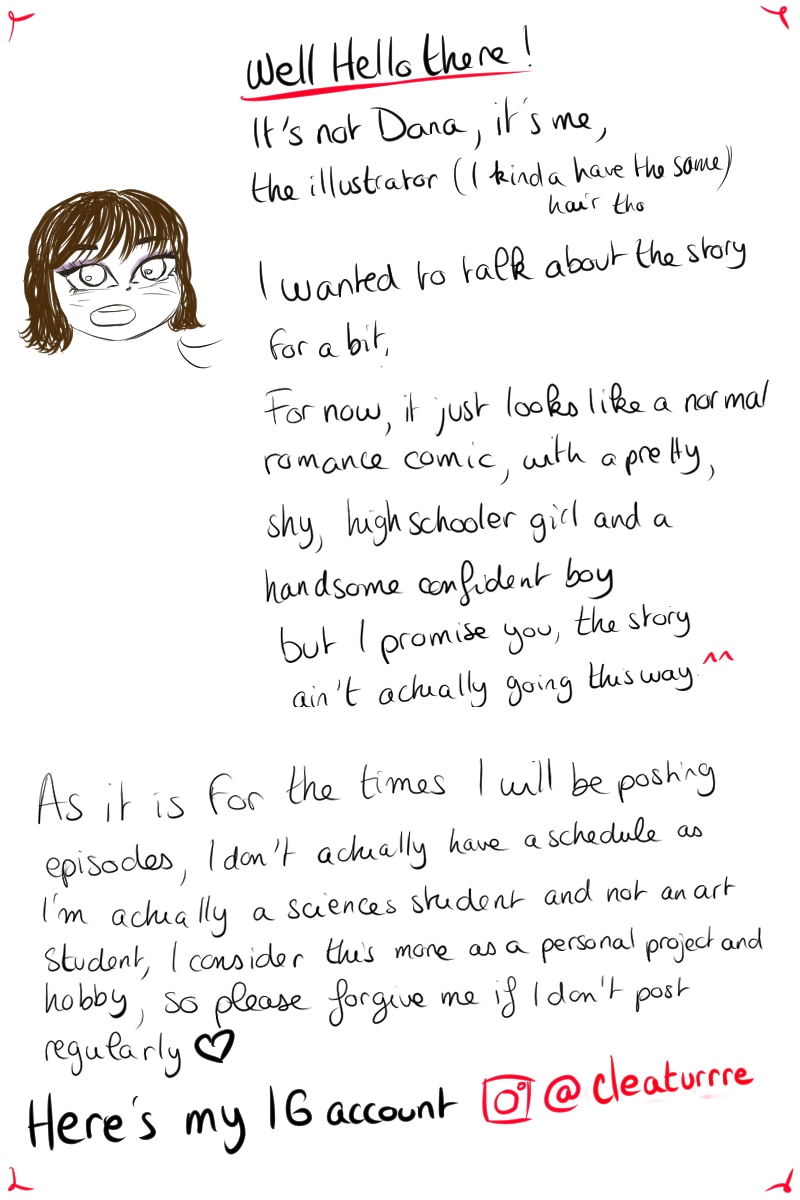 Well Hello there!
It's not Dana, it's me,
the illustrator (I kinda have the same)
hair tho
I wanted to talk about the story
for a bit,
For now, it just looks like a normal
romance comic, with a pretty,
shy, highschooler girl and a
handsome confident boy
but I promise you, the story
ain't actually going this way ^^
As it is for the times I will be posting
episodes, I don't actually have a schedule as
I'm actually a sciences student and not an art
student, I consider this more as a personal project and
hobby, so please forgive me if I don't post
regularly ♡
Here's my IG account @cleaturrre